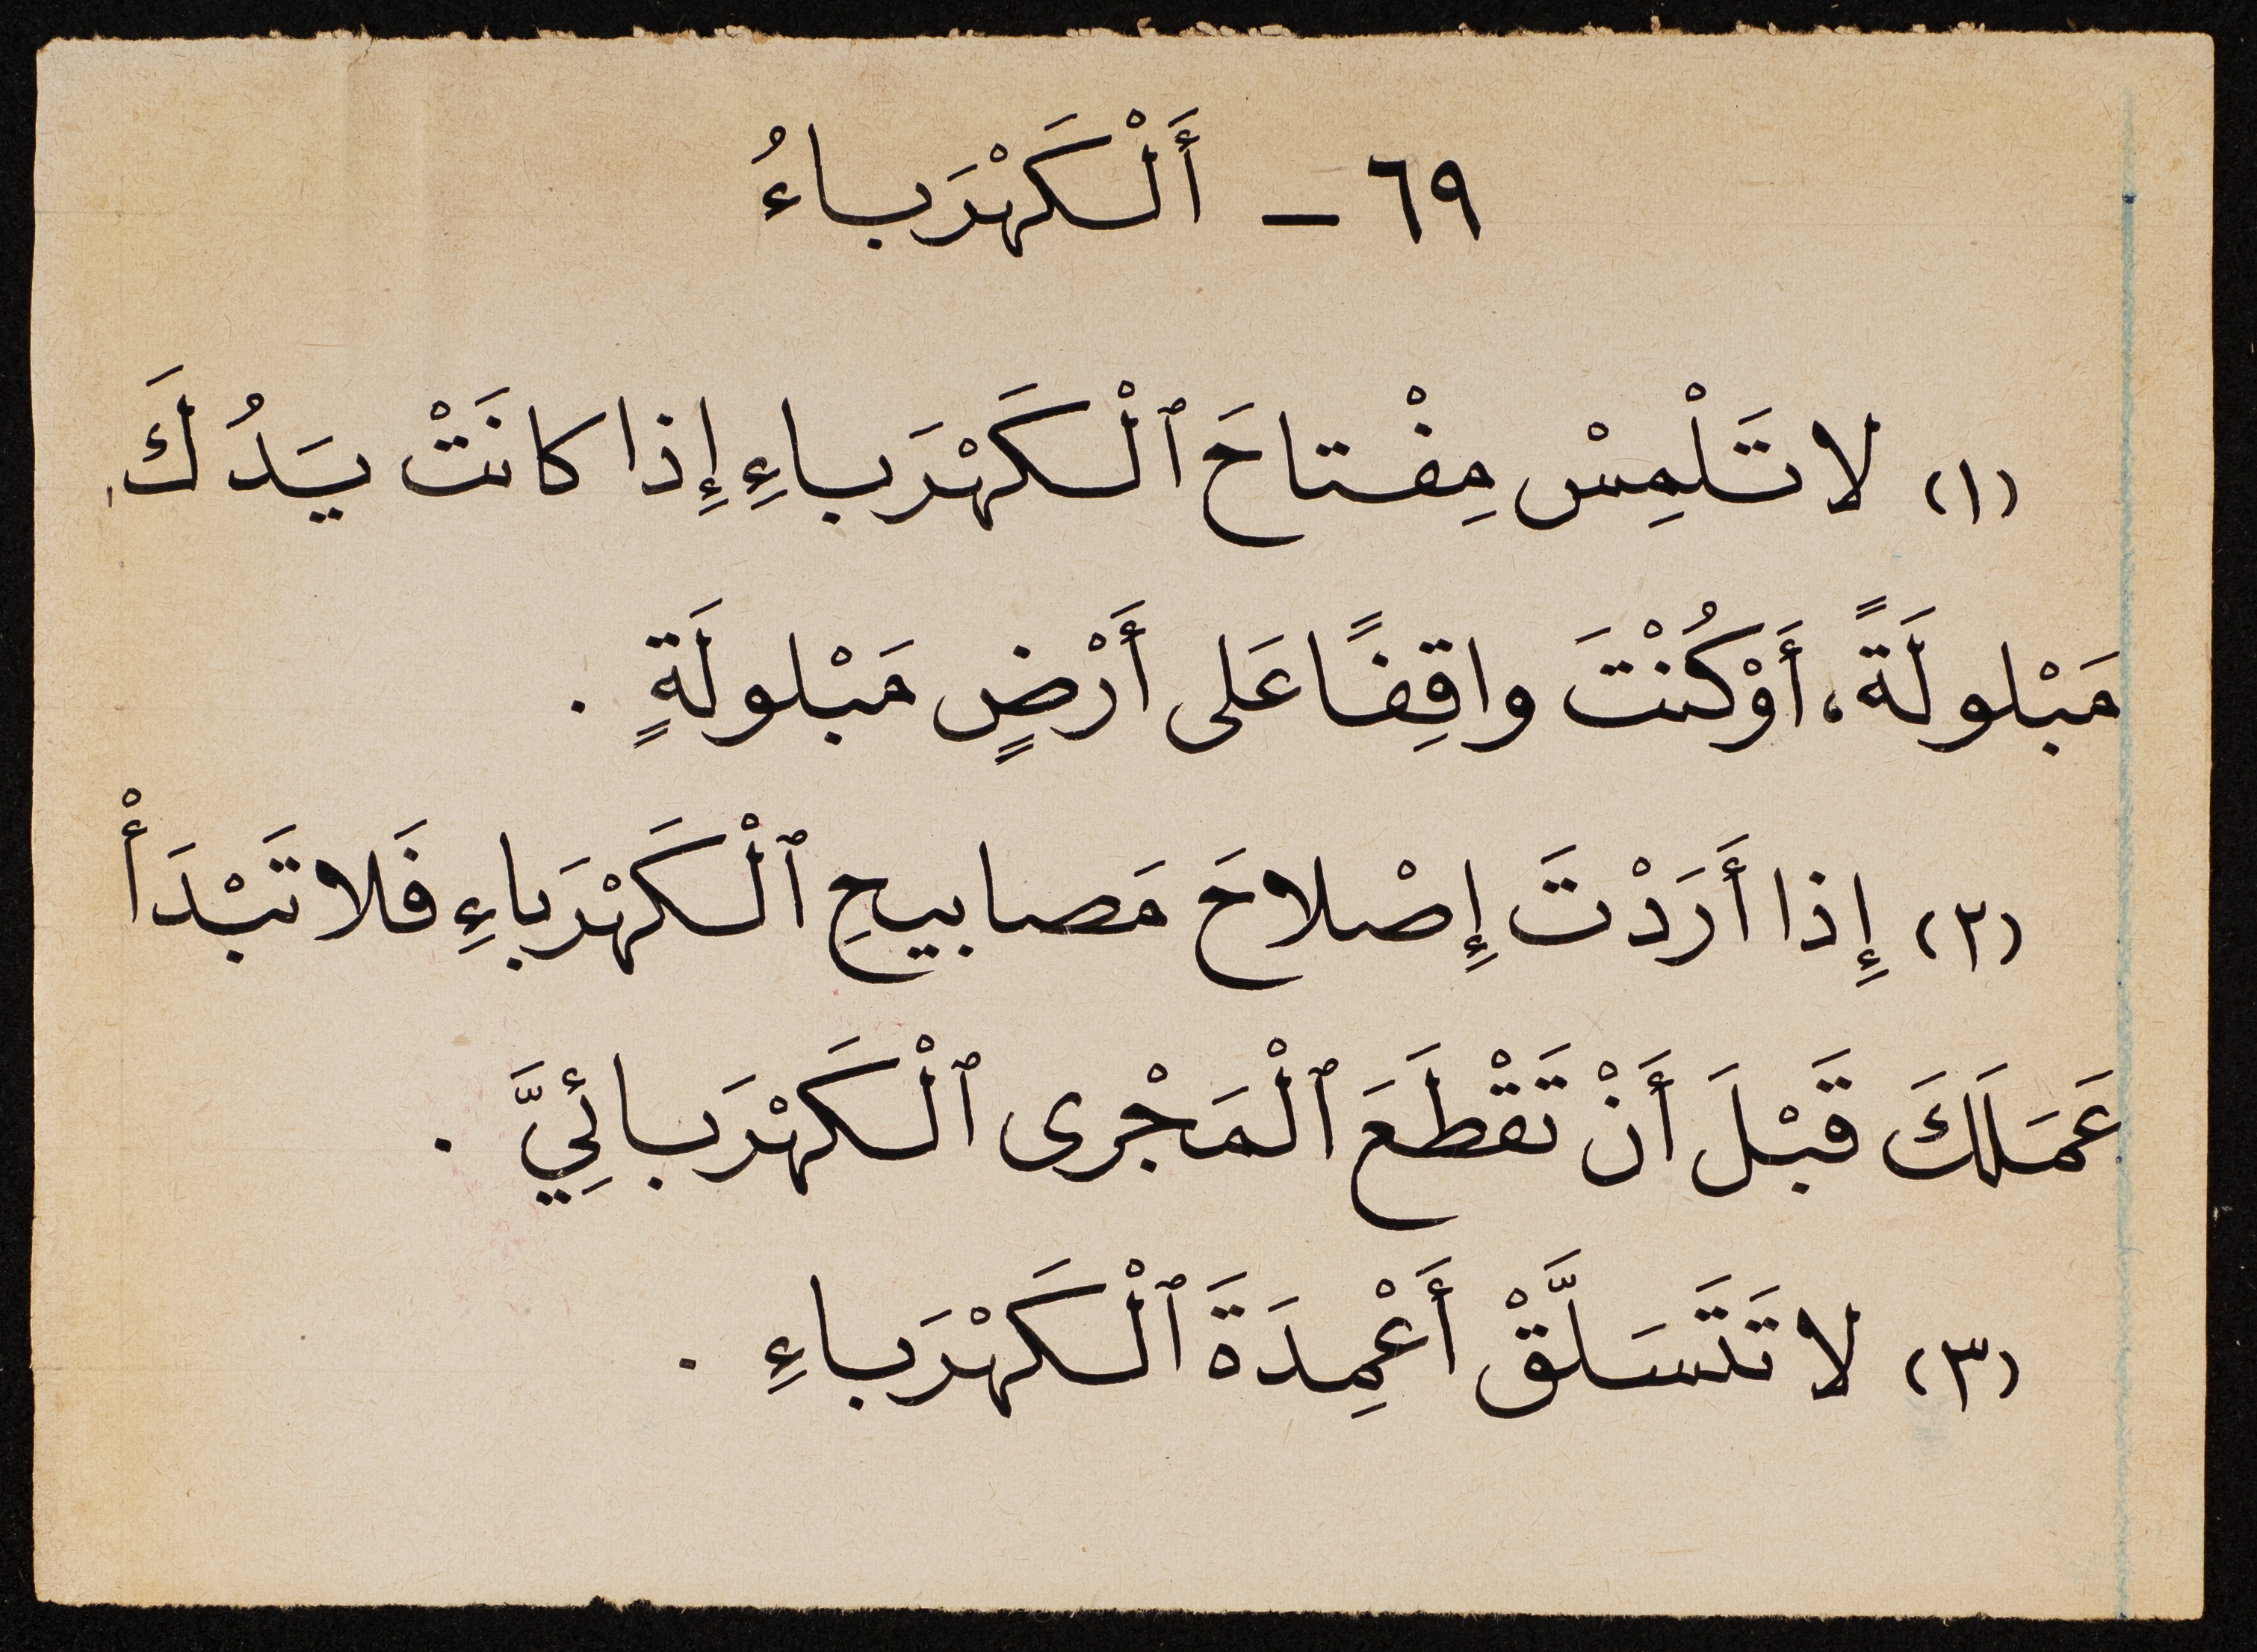 ٦٩ – أَلْكَهْرَباءُ
(١) لا تَلْمِسْ مِفْتاحَ ٱلْكَهْرَباءِ إِذا كانَتْ يَدُكَ
مَبْلولَةً، أَوْ كُنْتَ واقِفًا عَلى أَرْضٍ مَبْلولَةٍ .
(٢) إِذا أَرَدْتَ إِصْلاحَ مَصابيحِ ٱلْكَهْرَباءِ فَلا تَبْدَأْ
عَمَلَكَ قَبْلَ أَنْ تَقْطَعَ ٱلْمَجْرى ٱلْكَهْرَبائِيَّ .
(٣) لا تَتَسَلَّقْ أَعْمِدَةَ ٱلْكَهْرَباءِ .